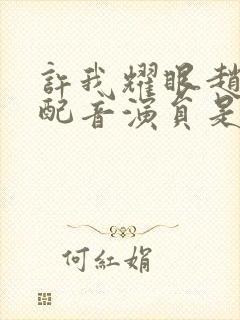 許我耀眼趙
配音演員是
何紅娟